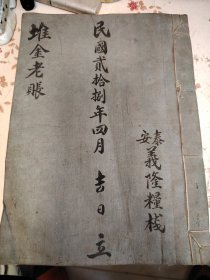 泰安
義隆糧棧
民國貳拾捌年四月 吉日 立
堆金老賬